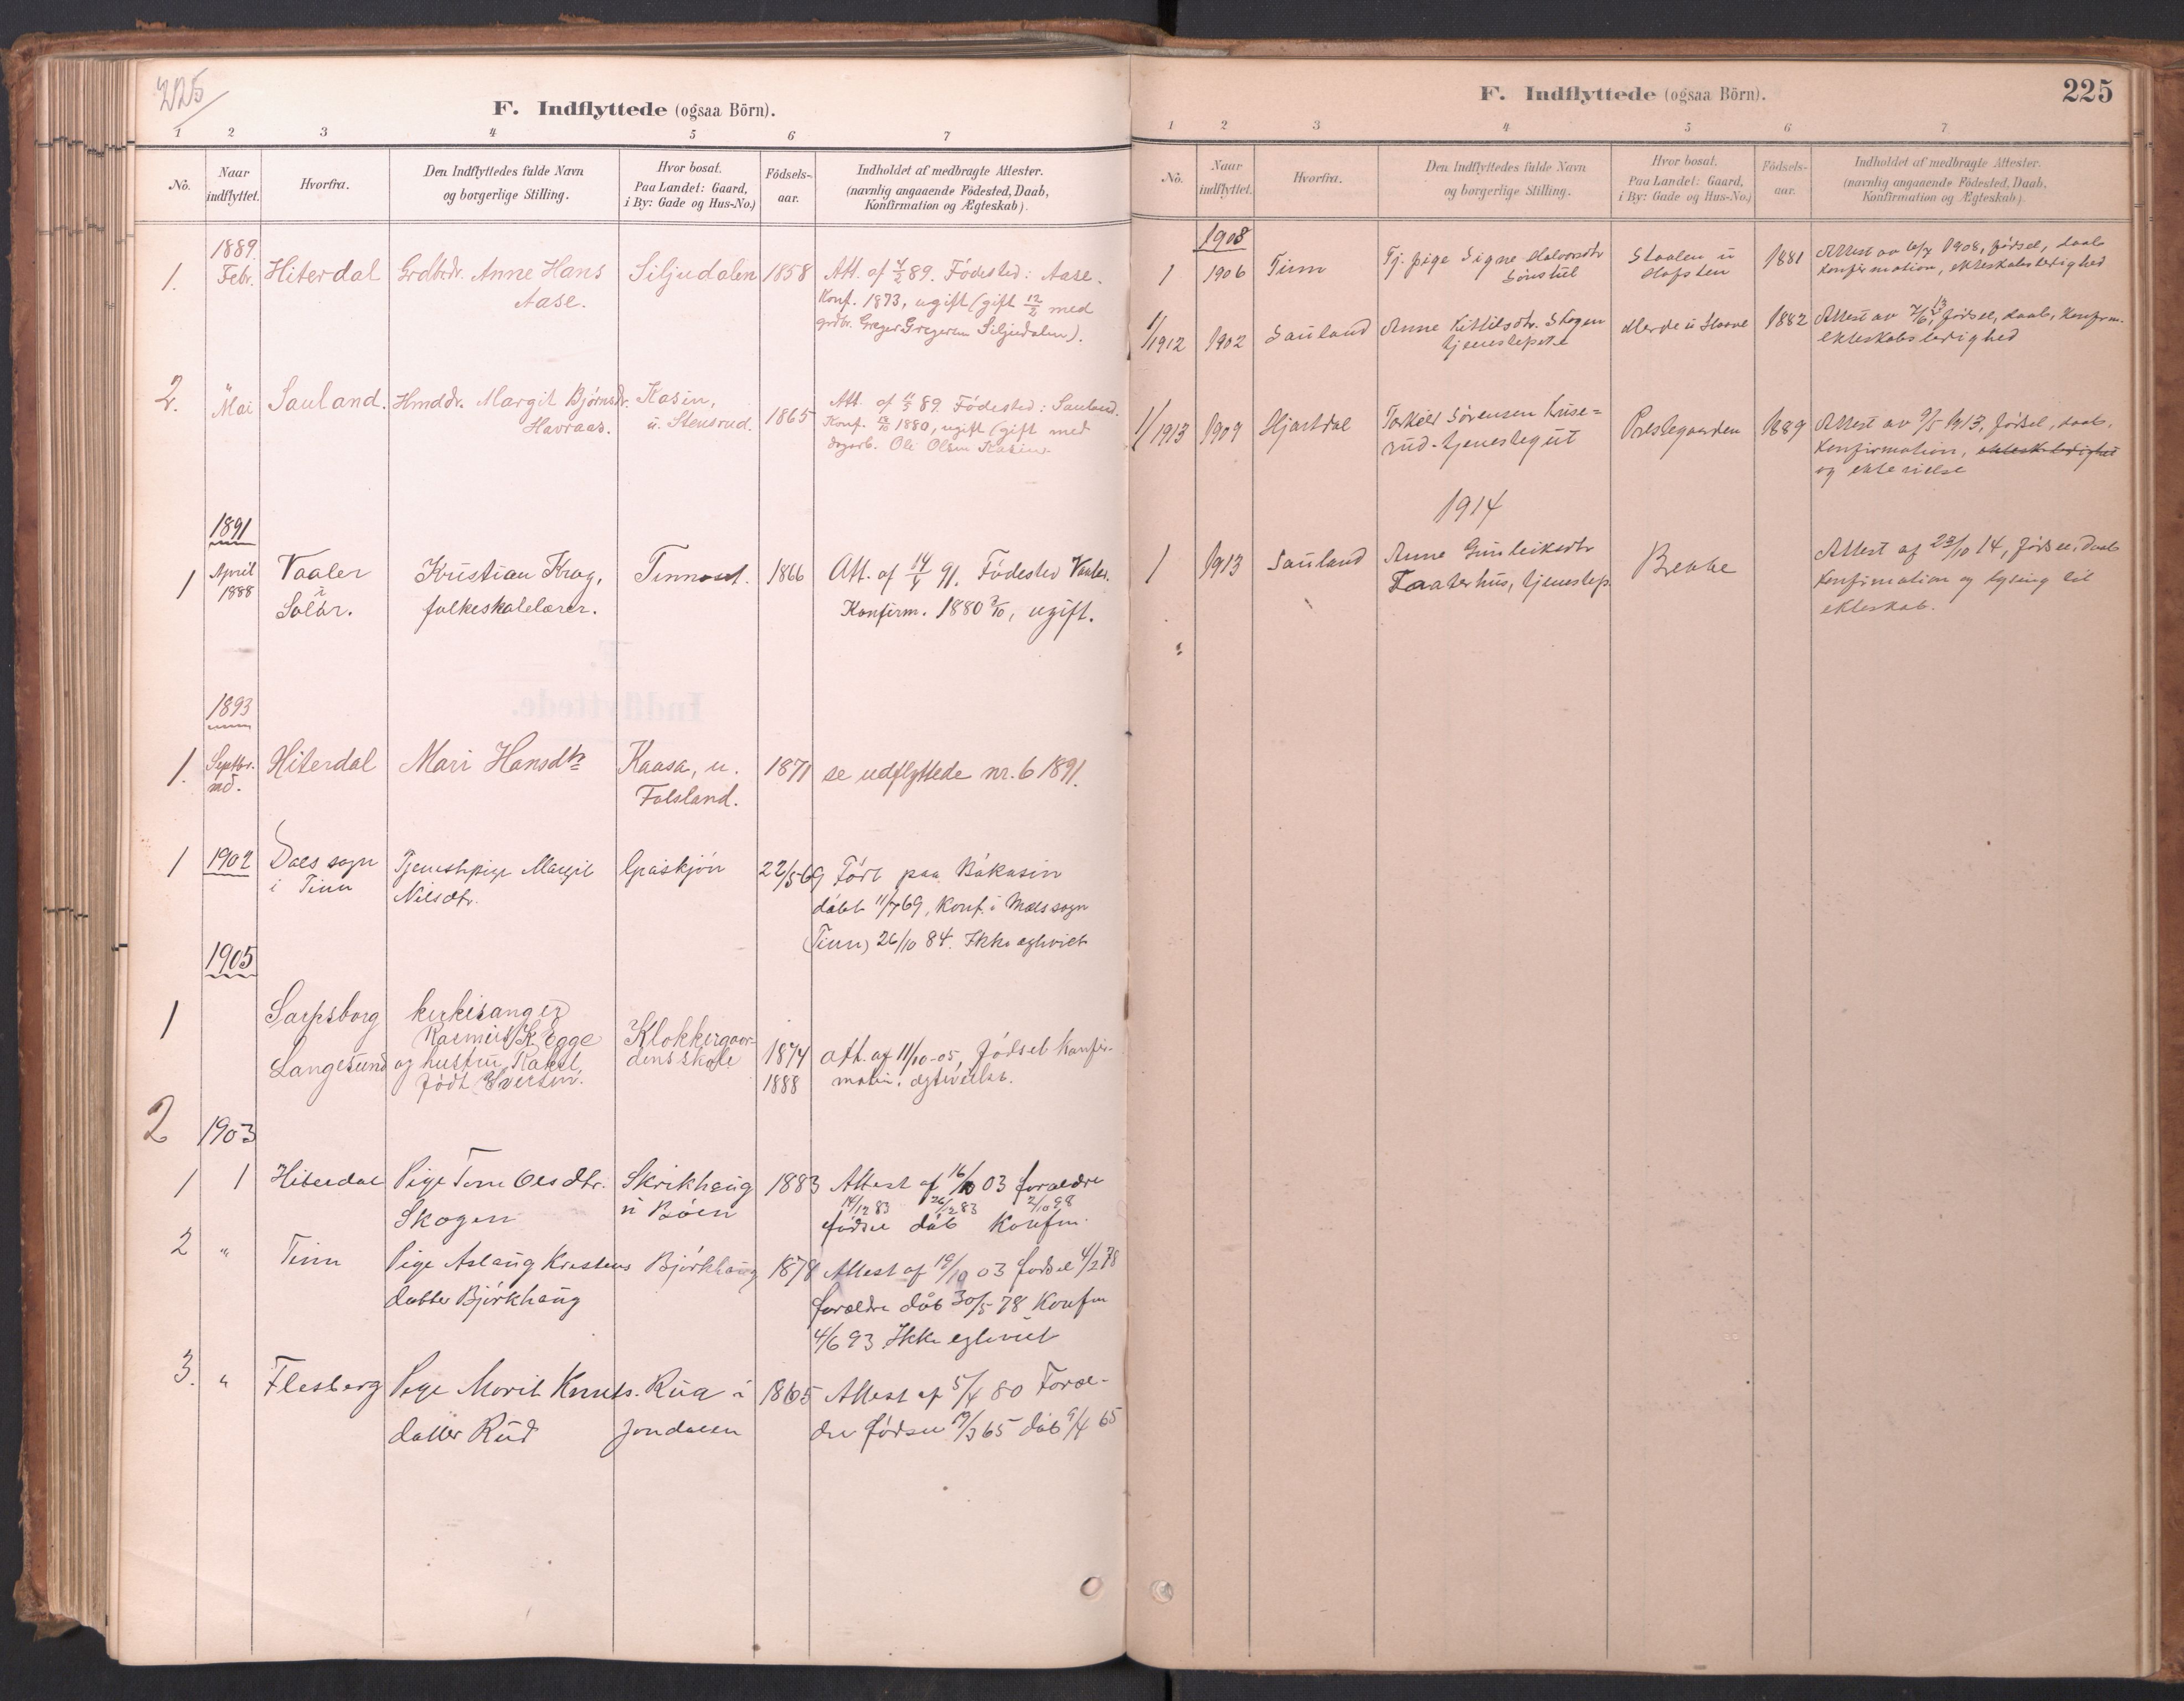 225
F. Indflyttede (ogsaa Börn).
1 2 3 4 5 6 7
No.
Naar
indflyttet.
Hvorfra.
Den Indflyttedes fulde Navn
og borgerlige Stilling.
Hvor bosat.
Paa Landet: Gaard,
i By: Gade og Hus-No.)
Födsels-
aar.
Indholdet af medbragte Attester.
(navnlig angaaende Födested, Daab,
Konfirmation og Ægteskab).
1889.
1. Febr. Hiterdal Grdbrdr. Anne Hans Siljudalen 1858 Att. af 4/2 89. Födested: Aase.
Aase. Konf. 1873, ugift (gift 12/2 med
grdbr. Greger Gregersen Siljudalen).
2. Mai Sauland. Hmddr. Margit Björnsdr. Kasin, 1865 Att. af 11/5 89. Födested: Sauland.
Havraas. u. Stensrud. Konf. 1880, ugift (gift med
dagarb. Ole Olsen Kasin.
1891
1 April Vaaler Kristian Krog, Tinnoset. 1866 Att. af 14/5 91. Födested Vaaler.
1888 i Solør. folkeskolelærer. Konfirm. 1880 3/10, ugift.
1893
1. Septbr. Hiterdal Mari Hansdtr Kaasa, u. 1871 se udflyttede nr. 6 1891.
md. Folsland.
1 1902 Daes sogn Tjenestepige Margit Graskjön 22/5 69 Född paa Bákasin
i Tinn Nilsdtr. döbt 11/7 69, Konf. i Mæls sogn
(Tinn) 26/10 84. Ikke egtviet
1905
1 Sarpsborg kirkesanger
Rasmus K. Egge Klokkergaar- 1874 att. af 11/10-05, födsel konfir-
Langesund og hustru Rakel, dens skole 1888 mation, egtevielse.
född Evertsen.
2 1903
1 1 Hiterdal Pige Tone Olsdtr. Skrikhaug 1883 Attest af 16/10 03 forældre
Skogen u Böen 14/12 83 26/12 83 2/10 98
födsel dåb Konfm.
2 " Tinn Pige Aslaug Kristens Björkhaug 1878 Attest af 19/10 03 födsel 4/2 78
datter Björkhaug forældre dåb 30/5 78 Konfm
4/6 93 Ikke egteviet
3. " Flesberg Pige Marit Knuts. Rua i 1865 Attest af 5/4 80 Foræl-
datter Rud Jondalen dre födsel 19/3 65 dåb 9/4 65
F. Indflyttede (ogsaa Börn).
225
1 2 3 4 5 6 7
No.
Naar
indflyttet.
Hvorfra.
Den Indflyttedes fulde Navn
og borgerlige Stilling.
Hvor bosat.
Paa Landet: Gaard,
i By: Gade og Hus-No.)
Födsels-
aar.
Indholdet af medbragte Attester.
(navnlig angaaende Födested, Daab,
Konfirmation og Ægteskab).
1908
1 1906 Tinn Tj. pige Signe Halvorsdtr Staalen u 1881 Attest av 10/7 1908, födsel, daab
Sönstul Hofsten konfirmation, ekteskabsledighed
1/1912 1902 Sauland Anne Kittilsdtr. Skogen 1882 Attest av 7/6 13, födsel, daab, konfirm.
tjenestepike ekteskabsledighed
1/1913 1909 Hjartdal Torkild Sörensen Kuse= Prestegaarden 1889 Attest av 9/5 1913, födsel, daab,
rud. tjenestegut konfirmation, ekteskabsledighed
og ektevielse
1914
1 1913 Sauland Anne Gunleiksdtr Bekke Attest af 23/10 14, födsel, daab
Taaterhus, tjenestep. konfirmation og lysing til
ekteskab.